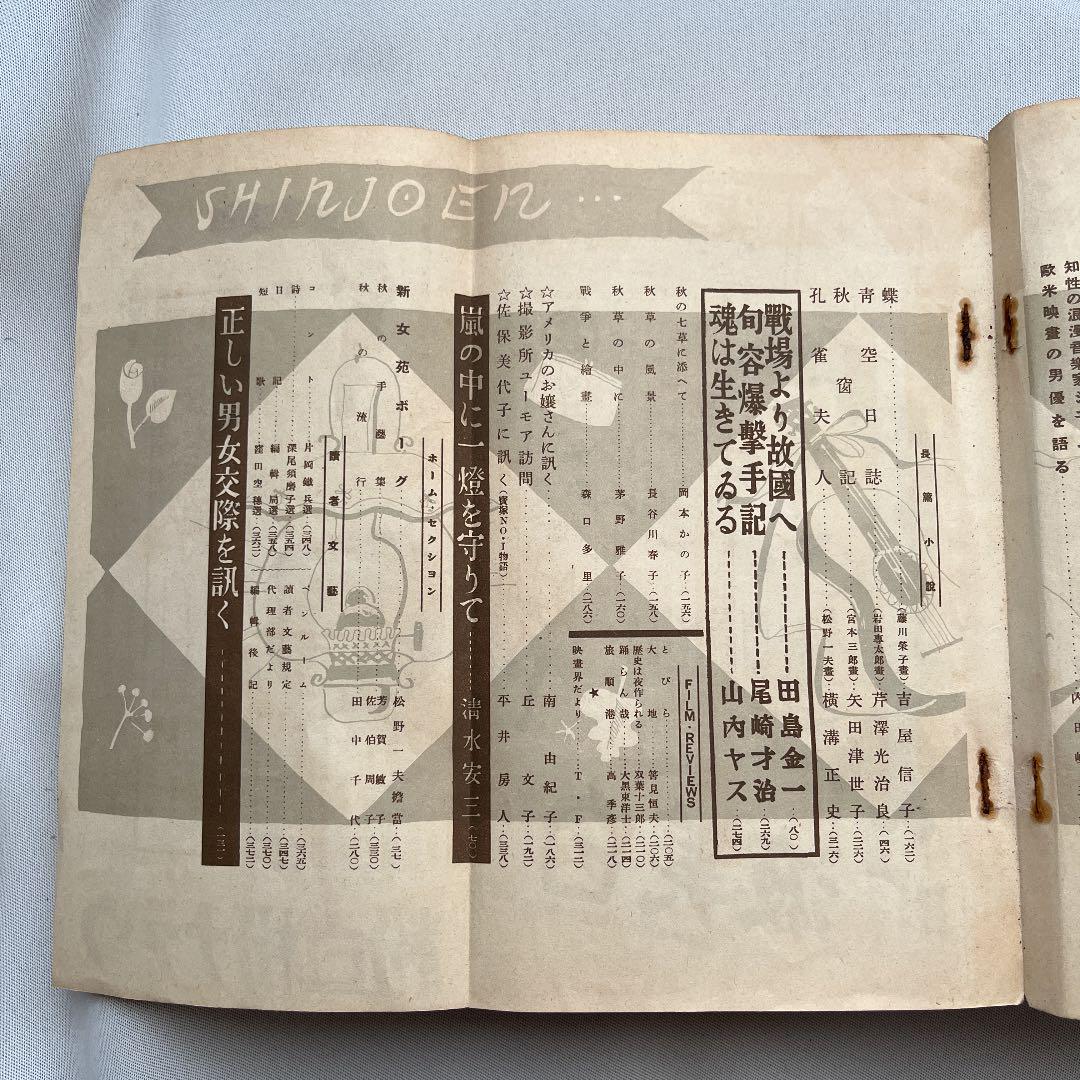 知性の浪漫音樂家シ
歐米映畫の男優を語る
SHINJOEN...
長篇小說
蝶……(藤川榮子畫)吉屋信子…(一六二)
靑空日誌……(岩田專太郎畫)芹澤光治良…(四六)
秋窗記……(宮本三郎畫)矢田津世子…(二三六)
孔雀夫人……(松野一夫畫)橫溝正史…(三二六)
戰場より故國へ……田島金一(八〇)
句容爆擊手記……尾崎才治(二六九)
魂は生きてゐる……山內ヤス(二七四)
秋の七草に添へて……岡本かの子(一五六)
秋草の風景……長谷川春子(一五八)
秋草の中に……茅野雅子(一六〇)
戰爭と繪畫……森口多里(二八六)
FILM・REVIEWS
とびら……(二〇五)
大地……筈見恒夫(二〇六)
歷史は夜作られる……双葉十三郎(二一〇)
踊らん哉……大黑東洋士(二一四)
旅順港……高季彥(二一八)
映畫界だより……T・F(三一二)
☆アメリカのお孃さんに訊く……南由紀子(一八六)
☆撮影所ユーモア訪問……丘文子(一九二)
☆佐保美代子に訊く(寶塚NO・1物語)……平井房人(三三八)
嵐の中に一燈を守りて……淸水安三(七〇)
ホーム・セクション
新女苑ボーグ……松野一夫擔當(三七)
秋の手藝集……芳賀敏子(三三〇)
佐伯周子
秋の流行……田中千代(二八〇)
讀者文藝
コント……片岡鐵兵選(三四八)
詩……深尾須磨子選(三五四)
日記……編輯局選(三五八)
短歌……窪田空穗選(三六二)
ペンルーム……(三六五)
讀者文藝規定……(三四七)
代理部だより……(三七〇)
編輯後記……(三七二)
正しい男女交際を訊く……(一三一)